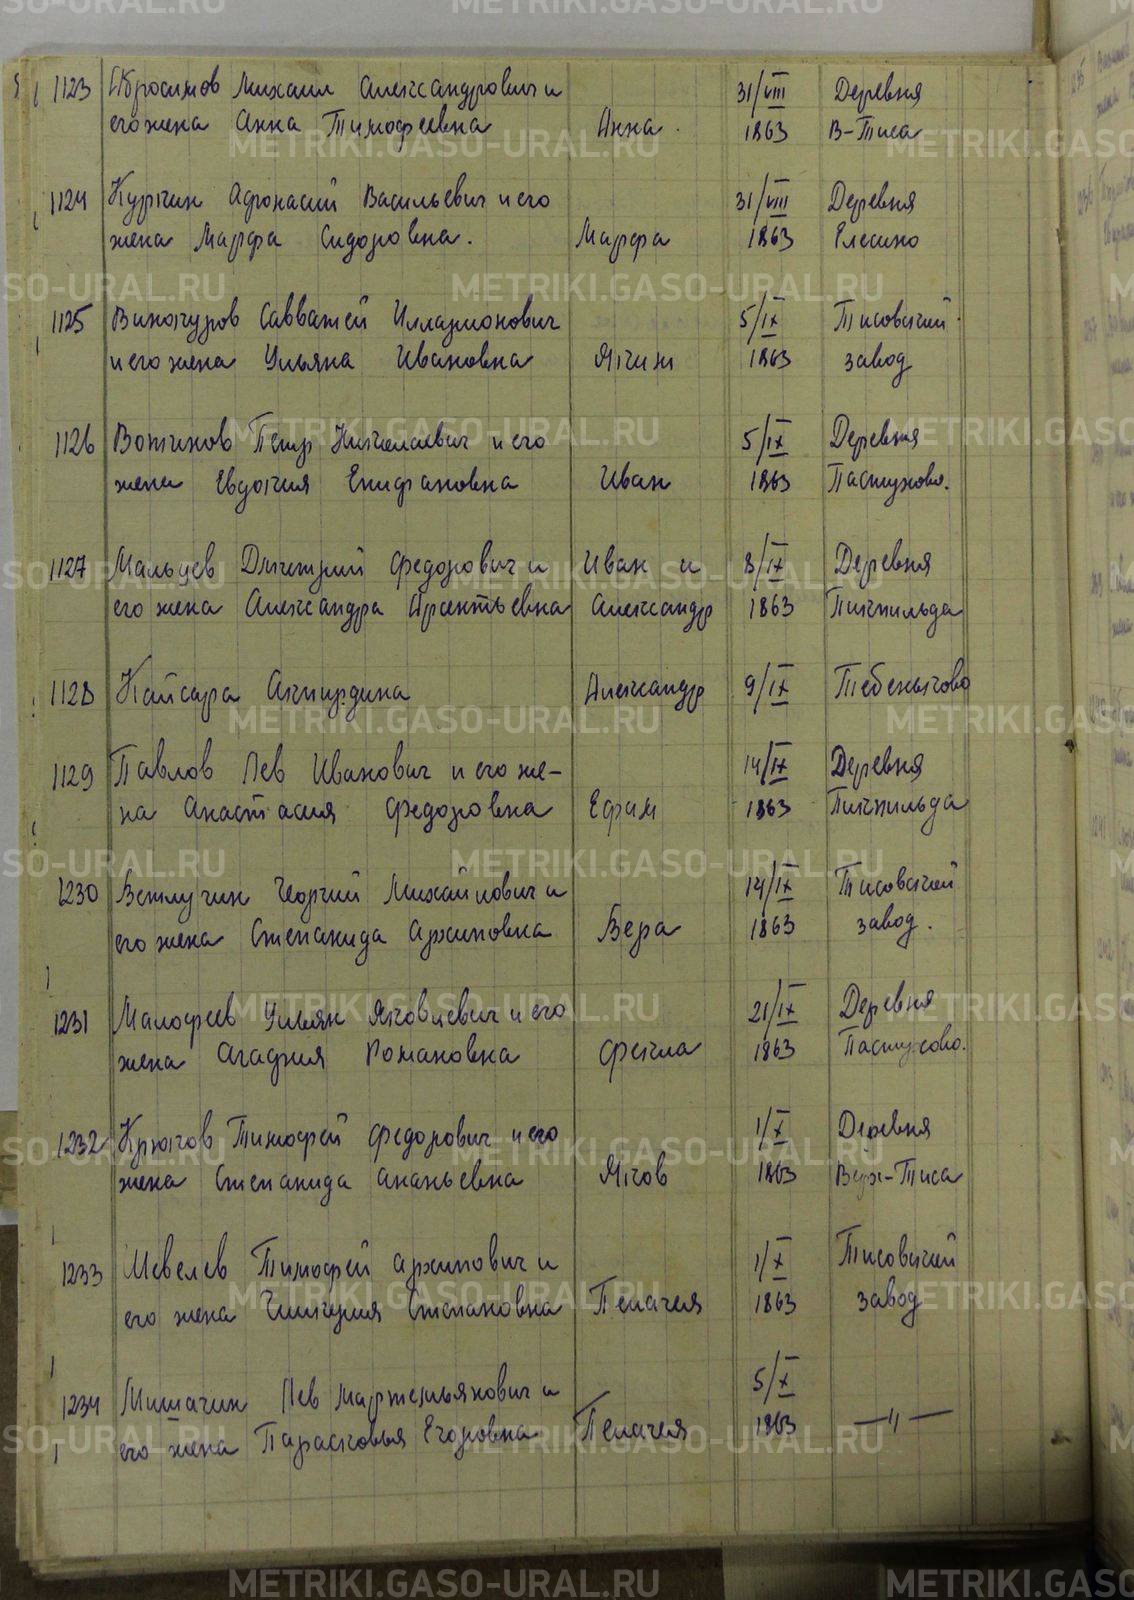 1123 Абросимов Михаил Александрович и 31/VIII Деревня
его жена Анна Тимофеевна Анна. 1863 В-Тиса
1124 Куркин Афонасий Васильевич и его 31/VIII Деревня
жена Марфа Сидоровна. Марфа 1863 Елесино
1125 Винокуров Савватей Илларионович 5/IX Тисовский
и его жена Ульяна Ивановна Яким 1863 завод
1126 Вотинов Петр Николаевич и его 5/IX Деревня
жена Евдокия Епифановна Иван 1863 Пастухово.
1127 Мальцев Дмитрий Федорович и Иван и 8/IX Деревня
его жена Александра Арентьевна Александр 1863 Пикпильда
1128 Кайсара Александр 9/IX Тебеньково
1129 Павлов Лев Иванович и его же- 14/IX Деревня
на Анастасия Федоровна Ефим 1863 Пикпильда
1230 Ветлугин Георгий Михайлович и 14/IX Тисовский
его жена Степанида Архиповна Вера 1863 завод.
1231 Малофеев Ульян Яковлевич и его 21/IX Деревня
жена Агафия Романовна Фекла 1863 Пастухово.
1232 Крюков Тимофей Федорович и его 1/X Деревня
жена Степанида Ананьевна Яков 1863 Верх-Тиса
1233 Шевелев Тимофей Архипович и 1/X Тисовский
его жена Гликерия Степановна Пелагея 1863 завод
1234 Мишагин Лев Мартемьянович и 5/X
его жена Парасковья Егоровна Пелагея 1863 —〃—
METRIKI.GASO-URAL.RU